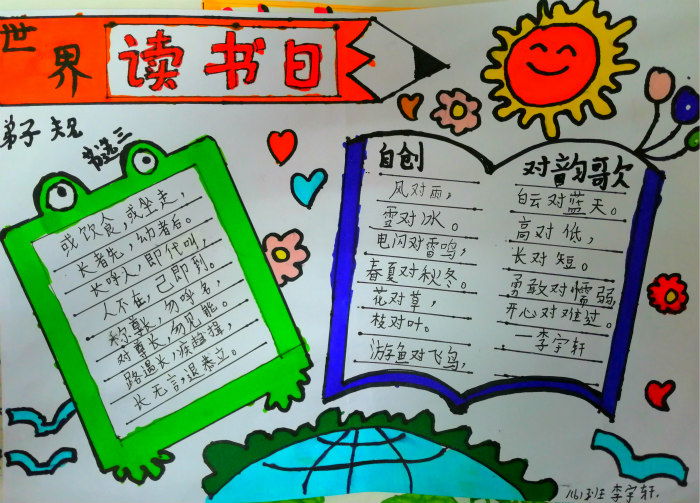 世界 读书日
弟子规
节选三
或饮食，或坐走，
长者先，幼者后。
长呼人，即代叫，
人不在，己即到。
称尊长，勿呼名，
对尊长，勿见能。
路遇长，疾趋揖，
长无言，退恭立。
自创
对韵歌
风对雨，
雪对冰。
电闪对雷鸣，
春夏对秋冬。
花对草，
枝对叶。
游鱼对飞鸟，
白云对蓝天。
高对低，
长对短。
勇敢对懦弱，
开心对难过。
—李宇轩
班李宇轩.